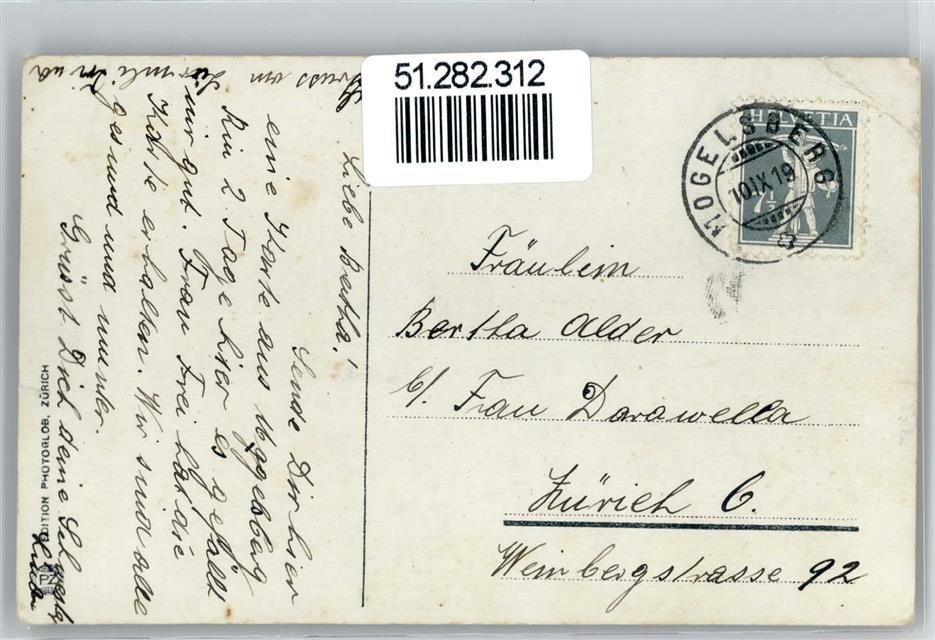 51.282.312
HELVETIA
7½
MOGELSBERG
10 IX 19
Liebe Bertha!
Sende Dir hier
eine Karte aus Mogelsberg
bin 2 Tage hier es gefällt
mir gut. Frau Frei hat die
Karte erhalten. Wir sind alle
gesund und munter.
Grüsst Dich deine Schwester
Gruss von
Fräulein
Bertha Alder
b/ Frau Darawella
Zürich 6.
Weinbergstrasse 92
EDITION PHOTOGLOB, ZÜRICH
PZ